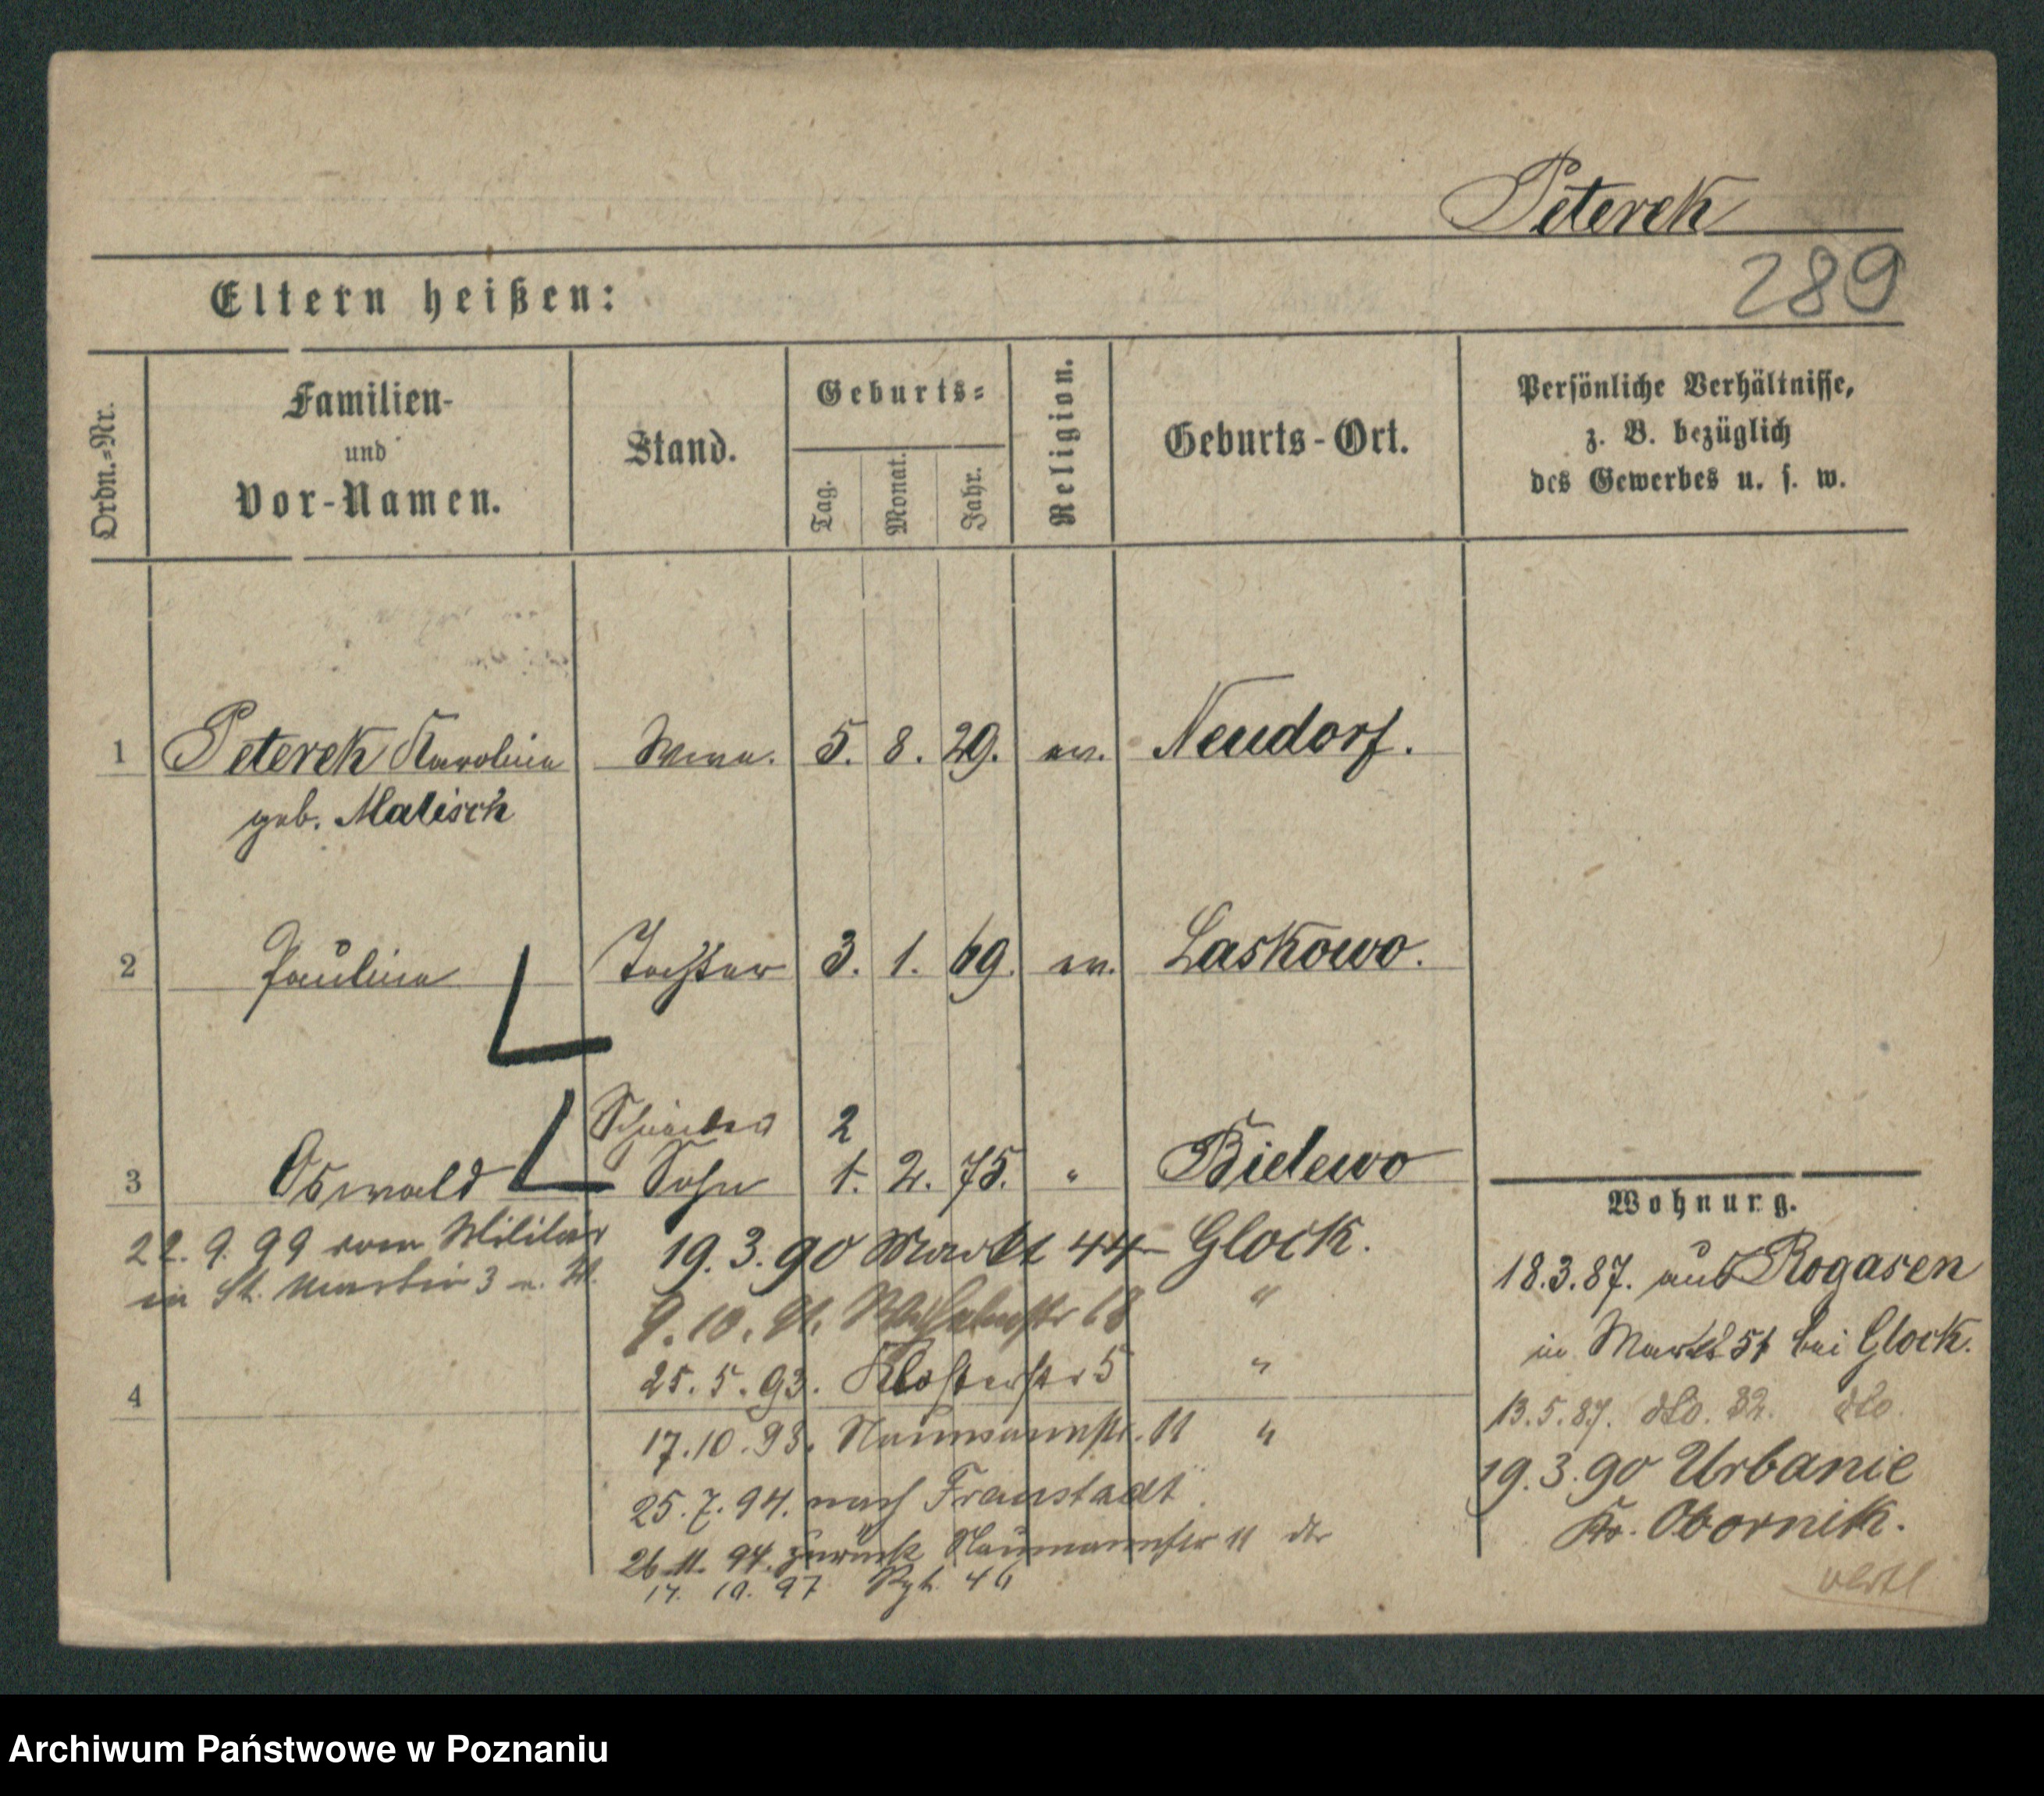 Peterek
289
Eltern heißen:
Ordn.-Nr.
Familien-
und
Vor-Namen.
Stand.
Geburts-
Tag.
Monat.
Jahr.
Religion.
Geburts-Ort.
Persönliche Verhältnisse,
z. B. bezüglich
des Gewerbes u. s. w.
1 Peterek Karolina 5. 8. 29. ev. Neudorf.
geb. Matisch
2 Paulina Tochter 3. 1. 69. ev. Laskowo.
Schreiber 2
3 Oswald Sohn 1. 2. 75. " Bielewo
22. 9. 99 vom Militär
in St. Martin 3
19. 3. 90 Markt 44 Glock.
9. 10. 91. Wilhelmstr 68 "
25. 5. 93. Klosterstr 5 "
4
17. 10. 93. Naumannstr. 11 "
25. 7. 94. nach Fraustadt
26 11. 94. zurück Naumannstr 11
14. 10. 97 Rgt. 46
Wohnung.
18. 3. 87. aus Rogasen
in Markt 51 bei Glock.
13. 5. 87. dto. 32. dto.
19. 3. 90 Urbanie
Kr. Obornik.
Archiwum Państwowe w Poznaniu